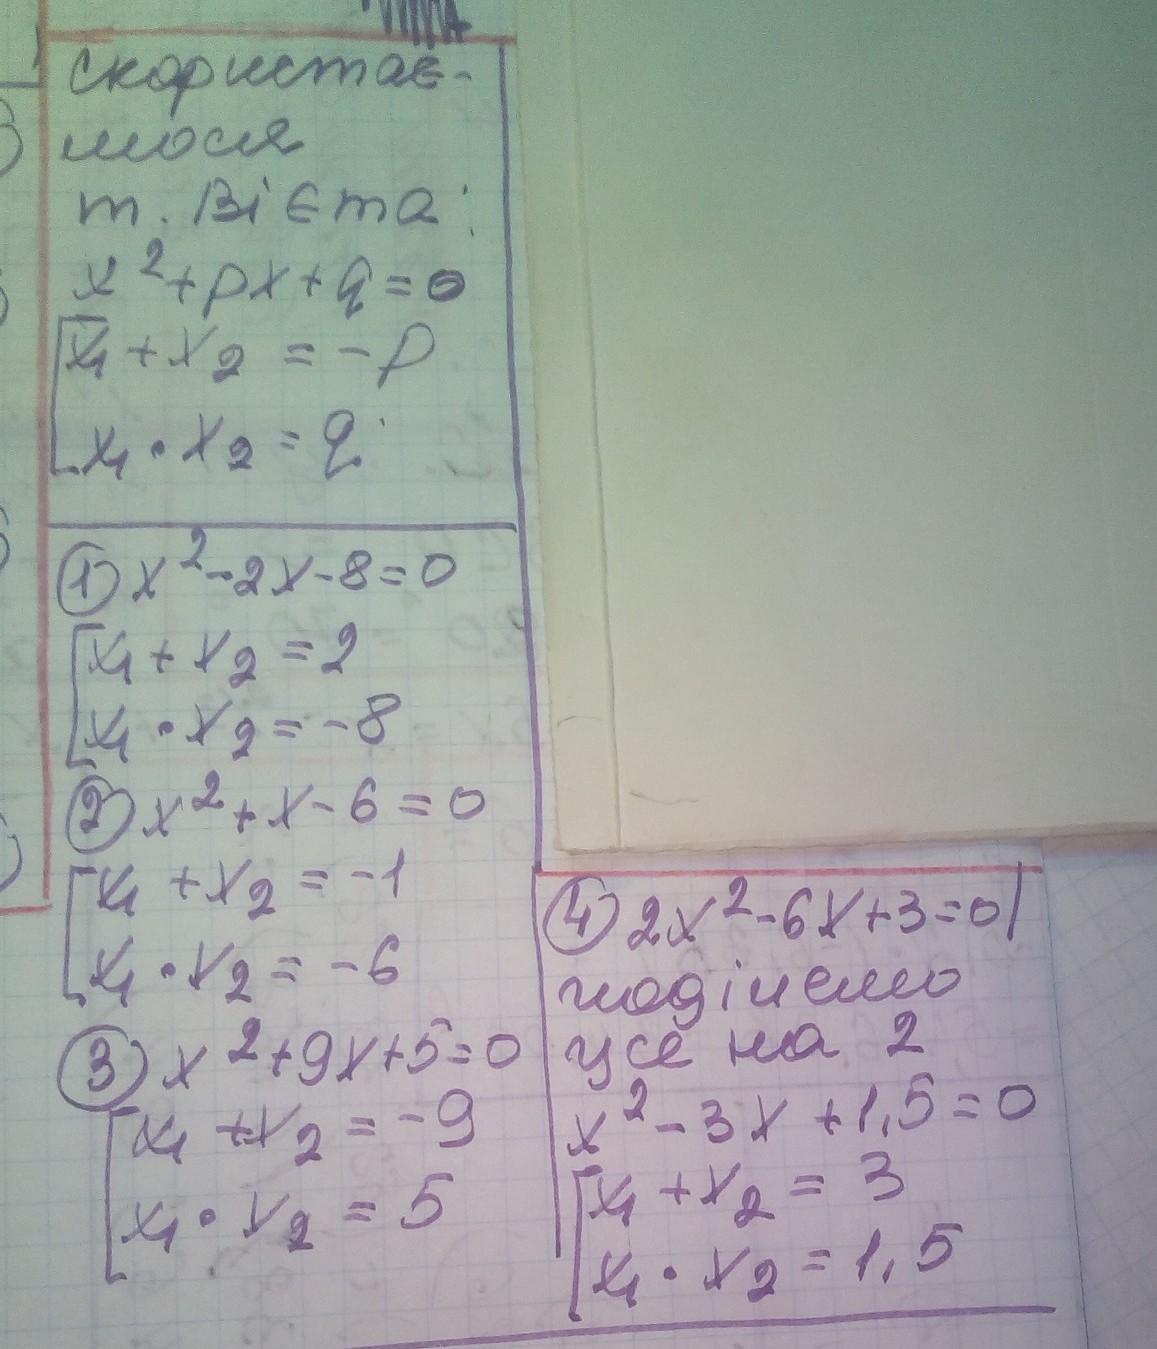 скористає-
мося
т. Вієта:
x² + px + q = 0
[x₁ + x₂ = -p
x₁ · x₂ = q
① x² - 2x - 8 = 0
[x₁ + x₂ = 2
x₁ · x₂ = -8
② x² + x - 6 = 0
[x₁ + x₂ = -1
x₁ · x₂ = -6
③ x² + 9x + 5 = 0
[x₁ + x₂ = -9
x₁ · x₂ = 5
④ 2x² - 6x + 3 = 0|
поділемо
усе на 2
x² - 3x + 1,5 = 0
[x₁ + x₂ = 3
x₁ · x₂ = 1,5